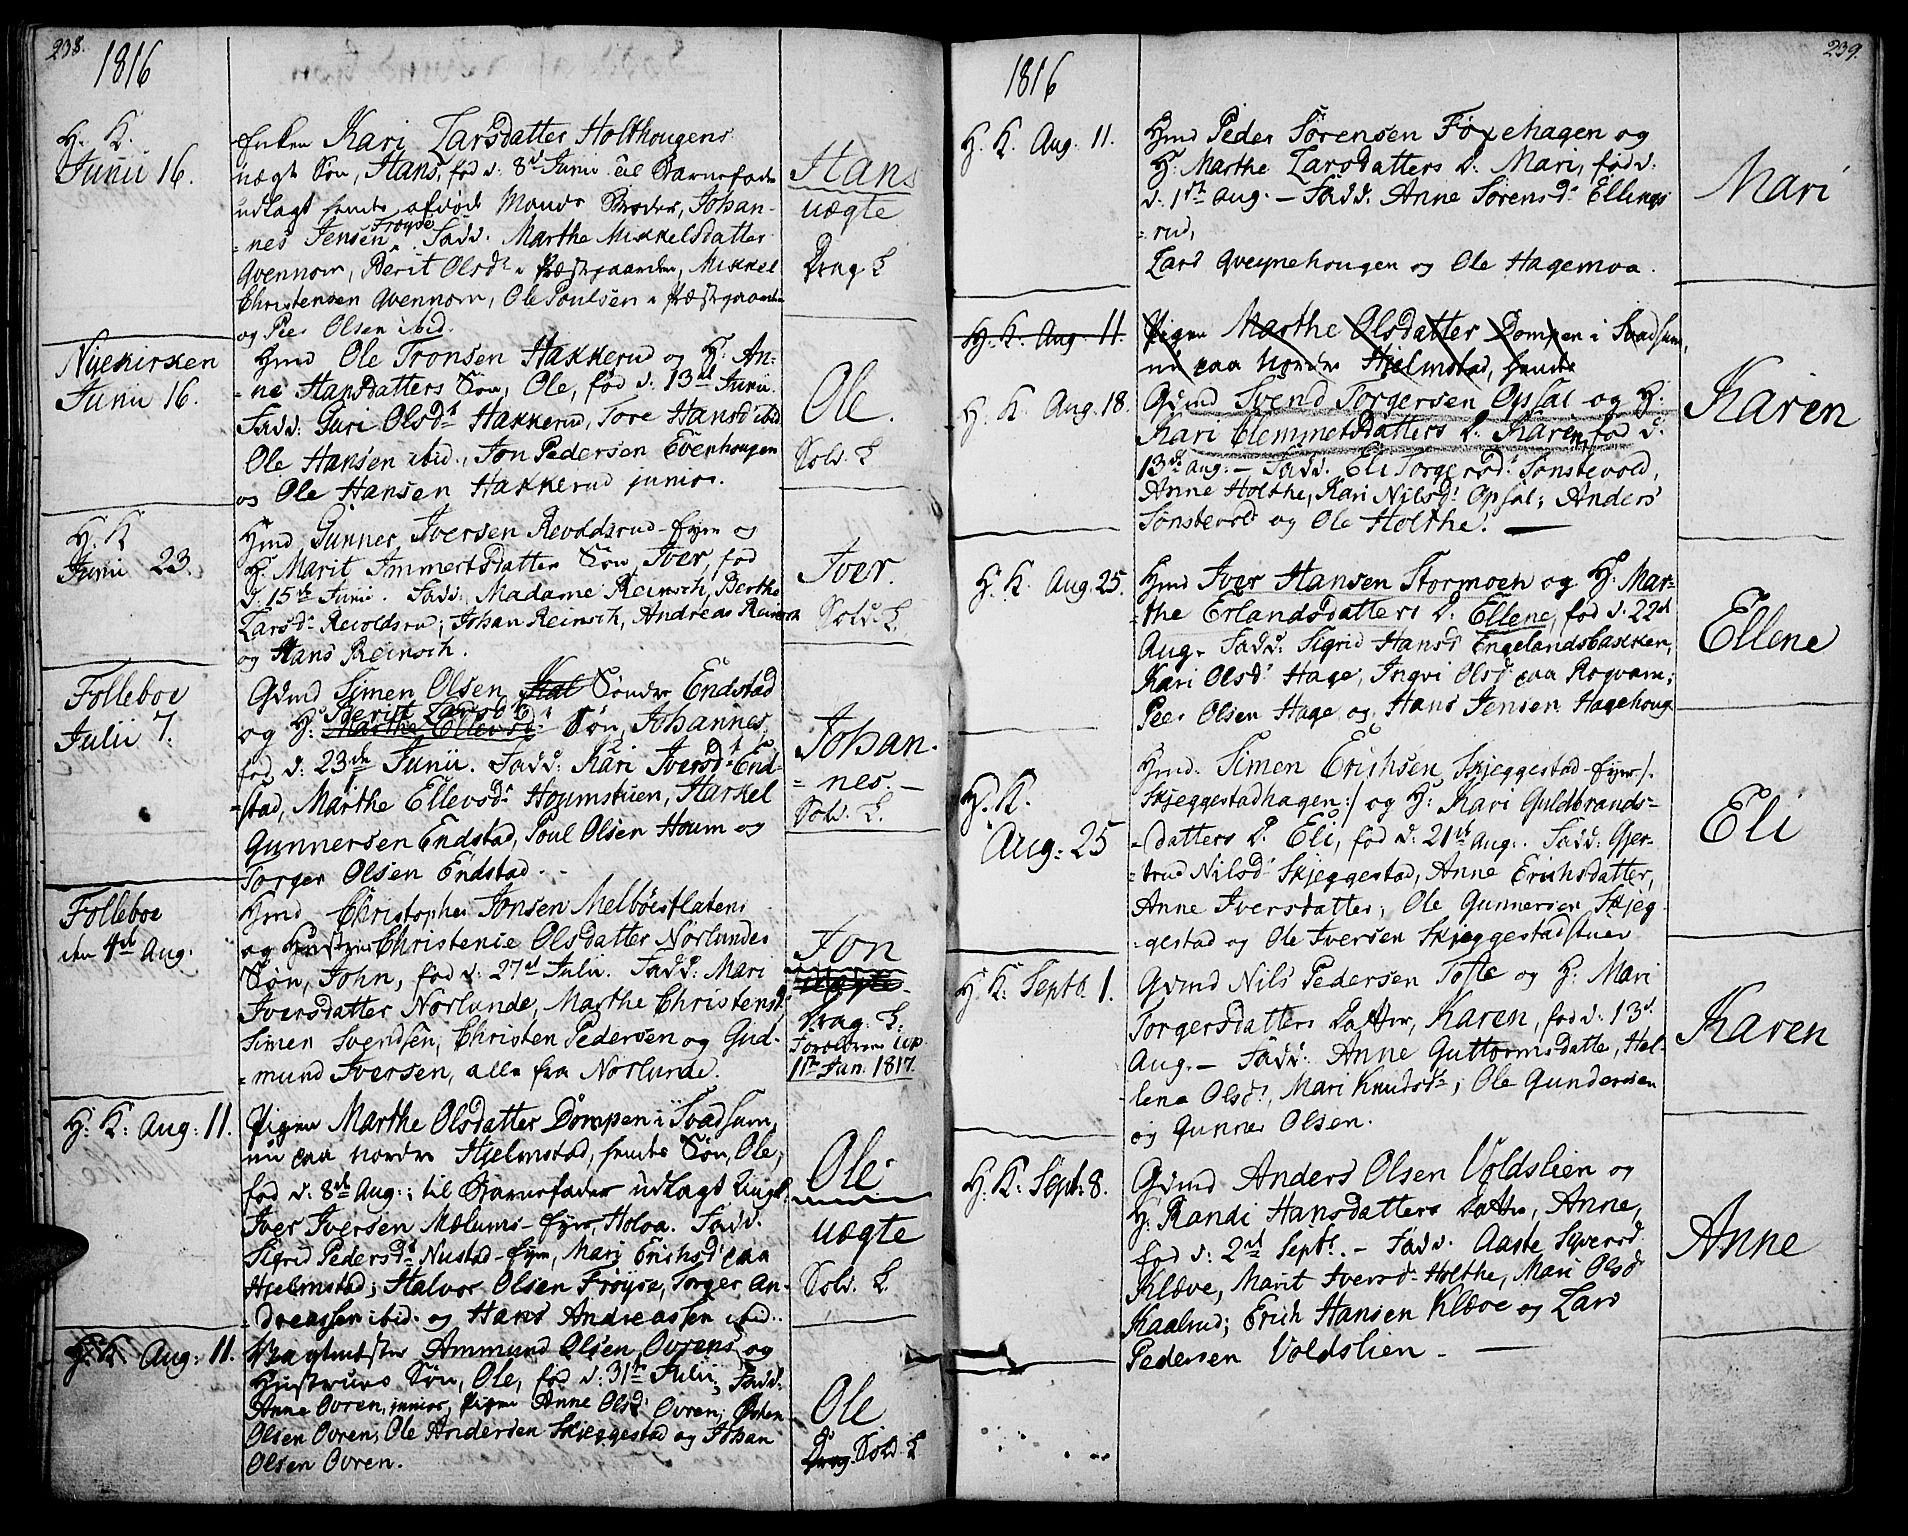 238.
1816
H. K.
Junii 16.
Enken Kari Larsdatter Holthougens
uægte Søn, Hans, fød d: 8de Junii til Barnefader
udlagt hendes afdøde Mands Broder, Johan-
=nes Jensen Frøyse. Fadd. Marthe Mikkelsdatter
Qvennom, Berit Olsdr i Præstgaarden, Mikkel
Christensen Qvennom, Ole Poulsen i Præstgaarden
og Peer Olsen ibid.
Hans
uægte
Drag. L
Nyekirken
Junii 16.
Hmd Ole Tronsen Hakkerud og H: An-
=ne Hansdatters Søn, Ole, fød d: 13de Junii.
Fadd: Guri Olsdr Hakkerud, Tore Hansd ibid
Ole Hansen ibid., Jon Pedersen Evenhougen
og Ole Hansen Hakkerud junior.
Ole.
Sold. L
H. K
Junii 23.
Hmd Gunner Iversen Revoldsrud-Eyen og
H: Marit Immertsdatter Søn, Iver, fød
d. 15de Junii. Fadd: Madame Reinsch, Berthe
Larsdr Revoldsrud; Johan Reinsch, Andreas Reinsch
og Hans Reinsch.
Iver.
Sold. L.
Folleboe
Julii 7.
Gdmd Simen Olsen Søndre Endstad
og H: Berit Larsdr Søn, Johannes
fød d: 23de Junii. Fadd: Kari Iversdr End-
=stad, Marthe Ellevsdr Houmstuen, Harkel
Gunnersen Endstad, Poul Olsen Houm og
Torger Olsen Endstad.
Johan-
=nes.
Sold. L.
Folleboe
den 4de Aug.
Hmd Christopher Jonsen Melböesflatens
og Hustrue Christenie Olsdatter Nörlundes
Søn, John, fød d: 27de Julii. Fadd: Mari
Iversdatter Nörlunde, Marthe Christensd.
Simen Svendsen, Christen Pedersen og Gud-
=mund Iversen, alle fra Nörlunde.
Jon
uægte
Drag: L:
11te Jun. 1817.
H: K: Aug: 11.
Pigen Marthe Olsdatter Dompen i Svadsum,
nu paa nordre Hjelmstad, hendes Søn, Ole,
fød d: 8de Aug.; til Barnefader udlagt Ungk.
Iver Iversen Mælums-Eyer, Holoa. Fadd.
Sigrid Pedersdr Nustad-Eyen, Mari Erichsd paa
Hjelmstad; Halvor Olsen Frøyse, Torger An-
=dreassen ibid. og Hans Andreassen ibid.
Ole
uægte
Sold. L.
H: K. Aug: 11.
Vagtmester Ammund Olsen Ovrens og
Hustrues Søn, Ole, fød d: 31te Julii. Fadd:
Anne Ovren junior, Pigen Anne Olsdr Ovren; Østen
Olsen Ovren, Ole Andersen Skjeggestad og Johan
Olsen Ovren.
Ole
Drag. Sold. L
239.
1816
H. K. Aug. 11.
Hmd Peder Sörensen Foxehagen og
H: Marthe Larsdatters D: Mari, fød
d. 1ste Aug. – Fadd. Anne Sørensdr Ellings
=rud,
Lars Qveynehougen og Ole Hagemoa.
Mari
H: K: Aug. 11.
Pigen Marthe Olsdatter Dompen i Svadsum,
nu paa nordre Hjelmstad, hendes
H: K. Aug. 18.
Gdmd Svend Torgersen Opsal og H:
Kari Clemmetsdatters D. Karen, fød d.
13de Aug: – Fadd. Eli Torgersdr Sonstevold,
Anne Holthe, Kari Nilsdr Opsal; Anders
Sonstevold og Ole Holthe. —
Karen
H: K. Aug. 25.
Hmd Iver Hansen Stormoen og H: Mar-
=the Erlandsdatters D: Ellene, fød d: 22de
Aug. Fadd: Sigrid Hansd Engelandsbakken,
Kari Olsdr Hage, Ingri Olsd paa Rogvam;
Peer Olsen Hage og Hans Jensen Hagehoug
Ellene
H. K.
Aug: 25
Hmd. Simen Erichsen Skjeggestad-Eyer /:
Skjeggestadhagen :/ og H: Kari Guldbrands-
=datters D. Eli, fød d: 21de Aug.. Fadd: Gjer-
=trud Nilsdr Skjeggestad, Anne Erichsdatter,
Anne Iversdatter; Ole Gunnersen Skjeg-
=gestad og Ole Iversen Skjeggestadstuen
Eli
H: K: Septb. 1.
Gdmd Nils Pedersen Tofte og H: Mari
Torgersdatters Datter, Karen, fød d: 13de
Aug. – Fadd: Anne Guttormsdatter, Hel-
lena Olsdr, Mari Knudsdr; Ole Gundersen
og Gunner Olsen.
Karen
H: K: Sept. 8.
Gdmd Anders Olsen Voldslien og
H: Randi Hansdatters Datter, Anne,
fød d: 2de Septr. – Fadd. Aaste Syversd
Klæve, Marit Iversdr Holthe, Mari Olsd
Kaalrud; Erich Hansen Klæve og Lars
Pedersen Voldslien. —
Anne